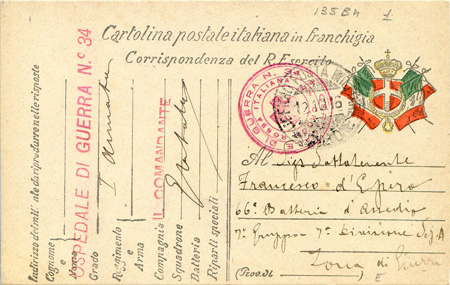 135 BH 1
Cartolina postale italiana in franchigia
Corrispondenza del R. Esercito
Indirizzo del mitt. da riprodurre nelle risposte
Cognome
e
Nome
Grado
Reggimento
e
Arma
Compagnia
Squadrone
Batteria
Riparti speciali
OSPEDALE DI GUERRA N.° 34
I Armata
IL COMANDANTE
DI GUERRA N.
CROCE ITALIANA
Al Sig. Sottotenente
Francesco d'Epiro
66ª Batteria d'Assedio
7° Gruppo 7ª Divisione
(Prov. di) Zona di Guerra
E